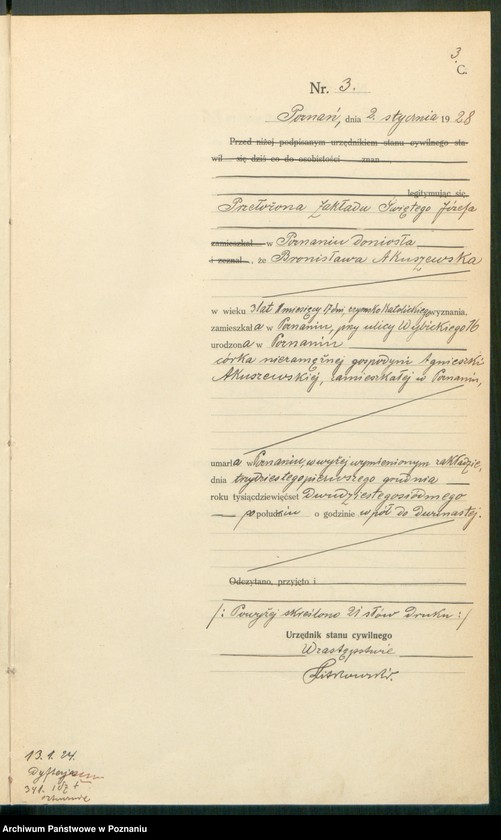 3.
C.
Nr. 3.
Poznań, dnia 2. stycznia 1928
Przed niżej podpisanym urzędnikiem stanu cywilnego sta-
wił się dziś co do osobistości znan
legitymując się
Przełożona Zakładu Świętego Józefa
zamieszkał w Poznaniu doniosła
i zeznał, że Bronisława Akuszewska
w wieku 3 lat miesięcy dni, rzymsko katolickiego wyznania,
zamieszkała w Poznaniu, przy ulicy Wybickiego 16
urodzona w Poznaniu
córka niezamężnej gospodyni Agnieszki
Akuszewskiej, zamieszkałej w Poznaniu,
umarła w Poznaniu, w wyżej wymienionym zakładzie,
dnia trzydziestego pierwszego grudnia
roku tysiącdziewięćset dwudziestegosiódmego
po południu o godzinie wpół do dwunastej.
Odczytano, przyjęto i
/: Powyżej skreślono 21 słów druku :/
Urzędnik stanu cywilnego
W zastępstwie
13.1.24.
Archiwum Państwowe w Poznaniu